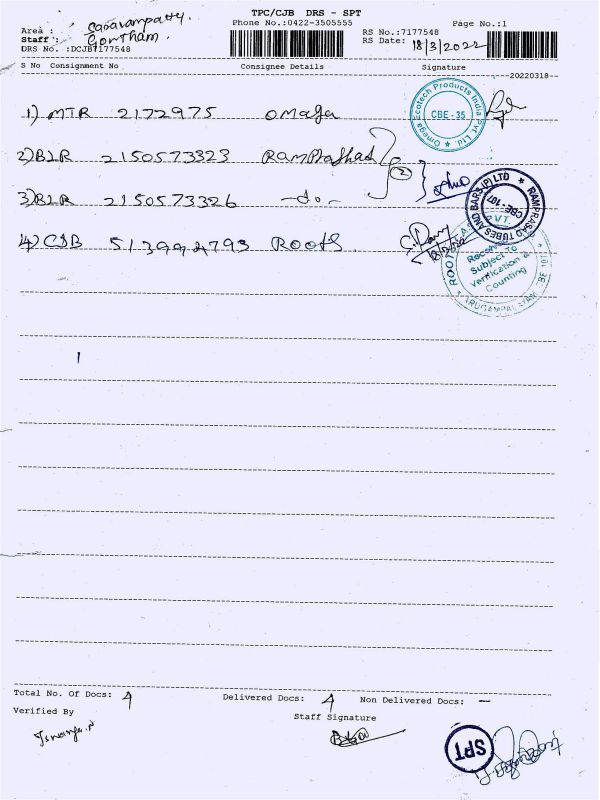 TPC/CJB DRS - SPT
Phone No.:0422-3505555
Page No.:1
Area :
Staff : Gowtham.
DRS No. :DCJB7177548
RS No.:7177548
RS Date: 18/3/2022
S No Consignment No Consignee Details Signature
20220318
1) MTR 2172975 Omega
Omega Ecotech Products India Pvt. Ltd.
CBE - 35
2) BLR 2150573323 Ramprashad
2
3) BLR 2150573326 -do-
RAMPRASAD TUBES AND BARS (P) LTD
CBE - 107
4) CJB 513992793 Roots
18/3/2022
ROOTS
PVT.
Received
Subject to
Verification &
Counting
Total No. Of Docs: 4 Delivered Docs: 4 Non Delivered Docs: —
Verified By
Staff Signature
SPT